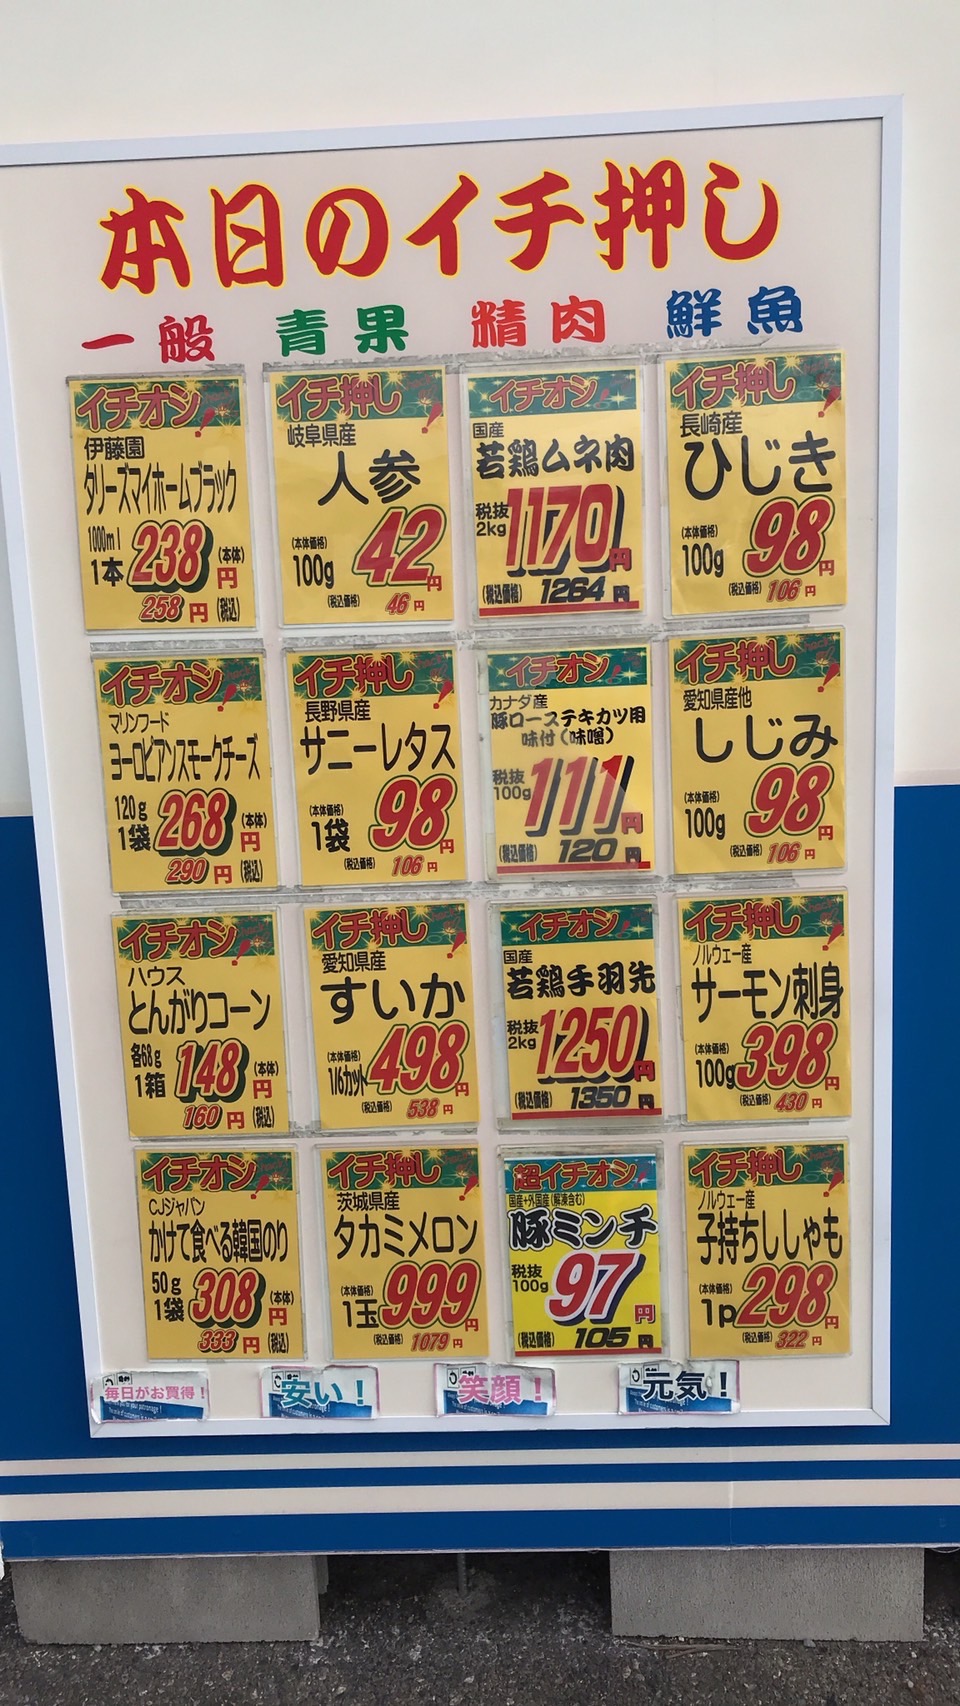 本日のイチ押し
一般 青果 精肉 鮮魚
イチオシ!
伊藤園
タリーズマイホームブラック
1000ml
1本 238円(本体)
258円(税込)
イチ押し!
岐阜県産
人参
(本体価格)
100g 42円
(税込価格) 46円
イチオシ!
国産
若鶏ムネ肉
税抜
2kg 1170円
(税込価格) 1264円
イチ押し!
長崎産
ひじき
(本体価格)
100g 98円
(税込価格) 106円
イチオシ!
マリンフード
ヨーロピアンスモークチーズ
120g
1袋 268円(本体)
290円(税込)
イチ押し!
長野県産
サニーレタス
(本体価格)
1袋 98円
(税込価格) 106円
イチオシ!
カナダ産
豚ローステキカツ用
味付(味噌)
税抜
100g 111円
(税込価格) 120円
イチ押し!
愛知県産他
しじみ
(本体価格)
100g 98円
(税込価格) 106円
イチオシ!
ハウス
とんがりコーン
各68g
1箱 148円(本体)
160円(税込)
イチ押し!
愛知県産
すいか
(本体価格)
1/6カット 498円
(税込価格) 538円
イチオシ!
国産
若鶏手羽先
税抜
2kg 1250円
(税込価格) 1350円
イチ押し!
ノルウェー産
サーモン刺身
(本体価格)
100g 398円
(税込価格) 430円
イチオシ!
CJジャパン
かけて食べる韓国のり
50g
1袋 308円(本体)
333円(税込)
イチ押し!
茨城県産
タカミメロン
(本体価格)
1玉 999円
(税込価格) 1079円
超イチオシ!
国産+外国産(解凍含む)
豚ミンチ
税抜
100g 97円
(税込価格) 105円
イチ押し!
ノルウェー産
子持ちししゃも
(本体価格)
1p 298円
(税込価格) 322円
毎日がお買得! 安い! 笑顔! 元気!